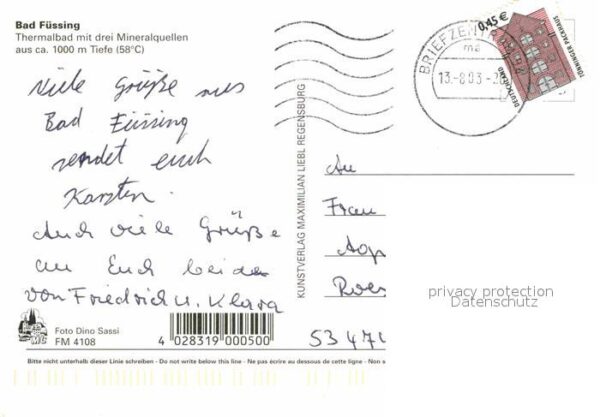 Bad Füssing
Thermalbad mit drei Mineralquellen
aus ca. 1000 m Tiefe (58°C)
Viele Grüße aus
Bad Füssing
sendet euch
Karsten.
Auch viele Grüße
an Euch beiden
von Friedrich u. Klara
Foto Dino Sassi
FM 4108
4 028319 000500
Bitte nicht unterhalb dieser Linie schreiben - Do not write below this line - Ne pas écrire au dessous de cette ligne - Non s
KUNSTVERLAG MAXIMILIAN LIEBL REGENSBURG
BRIEFZENTRUM
ma
13.-8.03-2
0,45 €
DEUTSCHLAND
TÖNNINGER PACKHAUS
An
Frau
privacy protection
Datenschutz